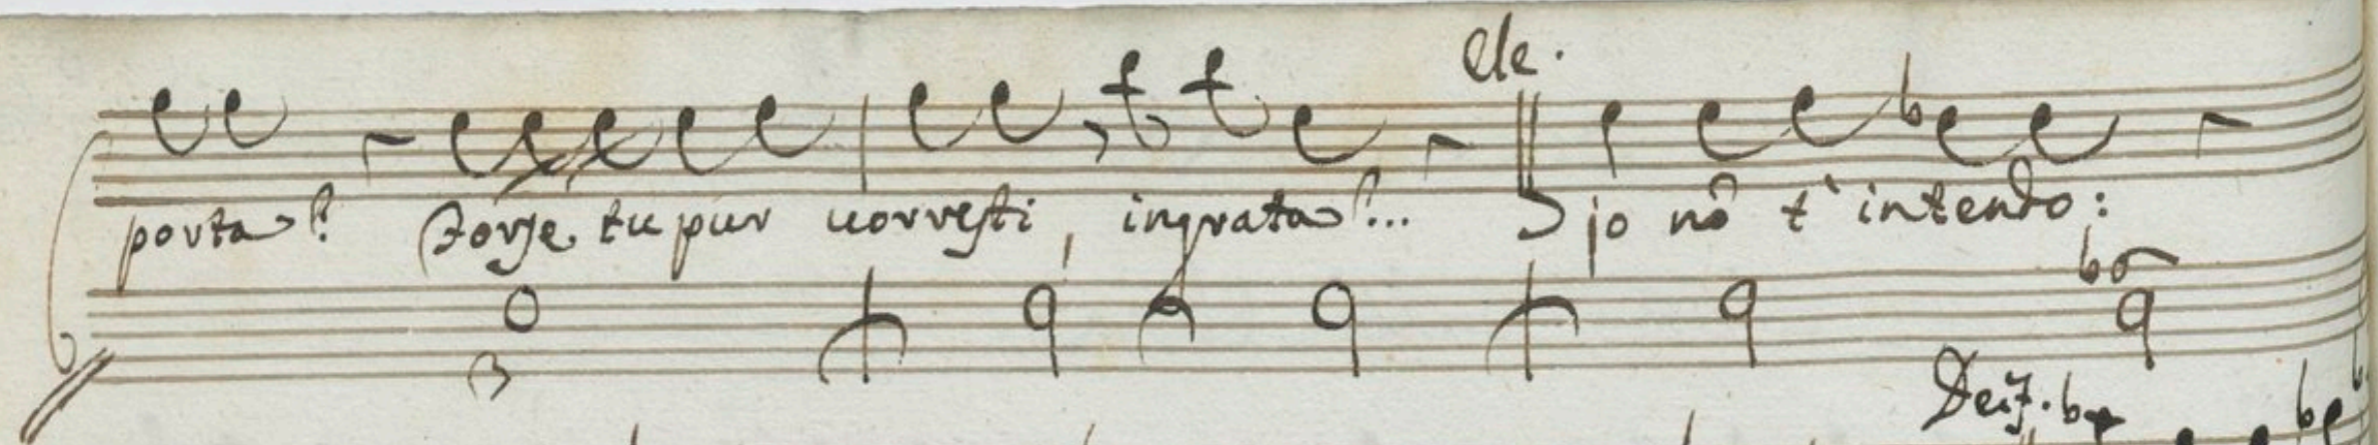 Ele.
porta? Forse tu pur vorresti, ingrata?... jo nõ t'intendo:
Dej.